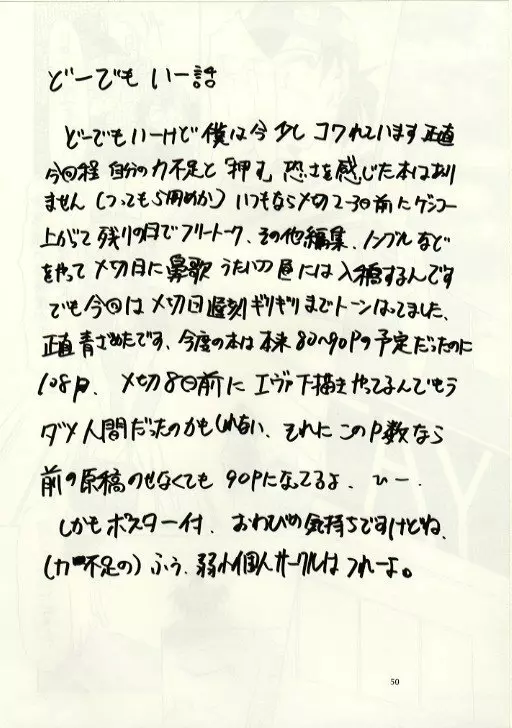 どーでもいー話
どーでもいーけど僕は今少しコワれています正直
今回程自分の力不足と「押す」恐さを感じた本はあり
ません(つっても5冊めか)いつもなら〆切2~3日前にゲンコー
上がって残りの日でフリートーク、その他編集、ノンブルなど
をやって〆切日に鼻歌うたいつつ
には入稿するんです
でも今回は〆切日遅刻ギリギリまでトーンはってました、
正直青ざめたです、今度の本は本来80~90Pの予定だったのに
108P、〆切8日前にエヴァ下描きやってるんでもう
ダメ人間だったのかもしれない、それにこのP数なら
前の原稿のせなくても90Pになってるよ、ひー.
しかもポスター付、おわびの気持ちですけどね、
(力不足の)ふぅ、弱小個人サークルはつれーよ。
50